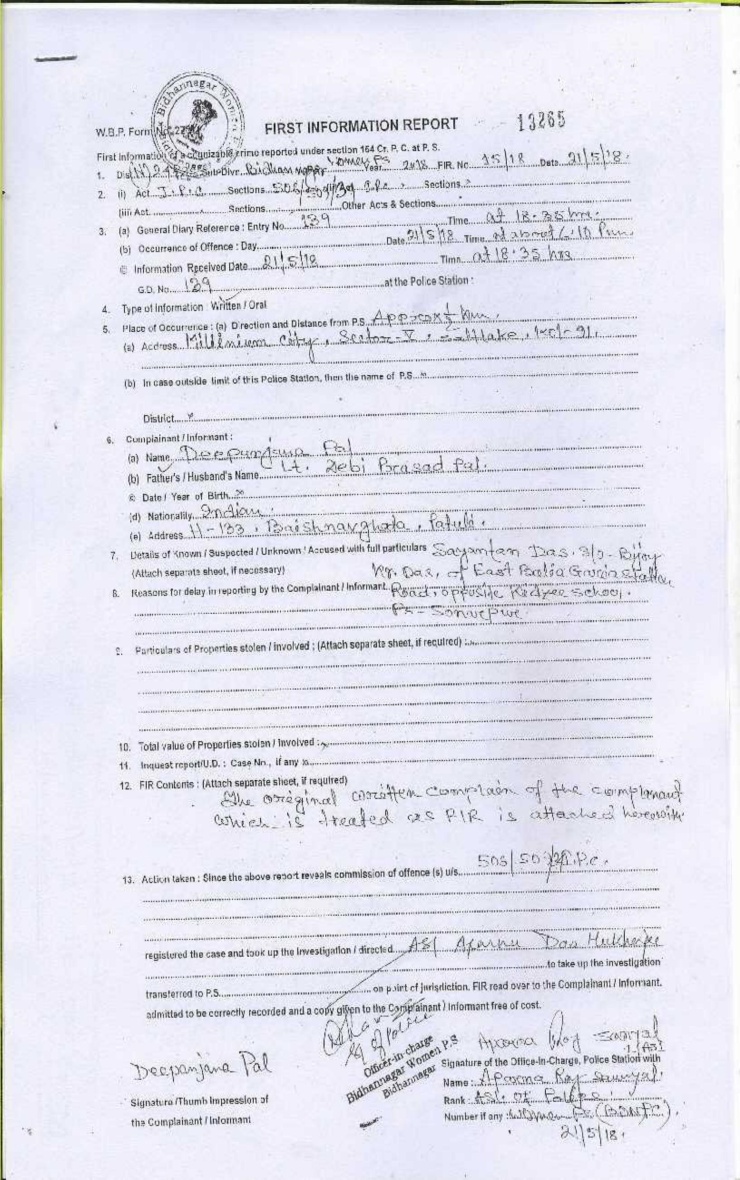 13265
W.B.P. Form No. 27
FIRST INFORMATION REPORT
First Information of a cognizable crime reported under section 154 Cr. P. C. at P. S.
1. Dist. Sub-Divr. Bidhannagar Women PS Year 2018 FIR. No 15/18 Date 21/5/18.
2. (i) Act I.P.C Sections 506/509/ I.P.C. Sections
(iii) Act Sections Other Acts & Sections
3. (a) General Diary Reference : Entry No. 139 Time at 18.35 hrs.
(b) Occurrence of Offence : Day Date 21/5/18 Time at about 6.10 P.m.
© Information Received Date 21/5/18 Time at 18.35 hrs
G.D. No. 139 at the Police Station :
4. Type of Information : Written / Oral
5. Place of Occurrence : (a) Direction and Distance from P.S. Approx Km.
(a) Address Millenium City, Sector-V, Saltlake, Kol-91.
(b) In case outside limit of this Police Station, then the name of P.S.
District
6. Complainant / Informant :
(a) Name Deepanjana Pal
(b) Father's / Husband's Name Lt. Debi Prasad Pal.
© Date / Year of Birth
(d) Nationality Indian.
(e) Address H-133, Baishnavghata, Patuli.
7. Details of Known / Suspected / Unknown / Accused with full particulars Sayantan Das. S/o- Bijoy
(Attach separate sheet, if necessary) Kr. Das, of East Station
8. Reasons for delay in reporting by the Complainant / Informant Road, opposite School.
PS- Sonarpur
9. Particulars of Properties stolen / involved ; (Attach separate sheet, if required) :
10. Total value of Properties stolen / Involved :
11. Inquest report/U.D. : Case No., if any
12. FIR Contents : (Attach separate sheet, if required)
The original written complain of the complanant
which is treated as FIR is attached herewith
13. Action taken : Since the above report reveals commission of offence (s) u/s 506/509 I.P.C.
registered the case and took up the Investigation / directed ASI Aparna Das Mukherjee
to take up the investigation
transferred to P.S. on point of jurisdiction. FIR read over to the Complainant / Informant.
admitted to be correctly recorded and a copy given to the Complainant / Informant free of cost.
Officer-in-charge
Bidhannagar Women P.S
Bidhannagar
Deepanjana Pal
Signature /Thumb Impression of
the Complainant / Informant
Aparna Roy Sanyal
Signature of the Office-In-Charge, Police Station with
Name : Aparna Roy Sanyal.
Rank : ASI. Of Police
Number if any : Women PS (BDNPC).
21/5/18.